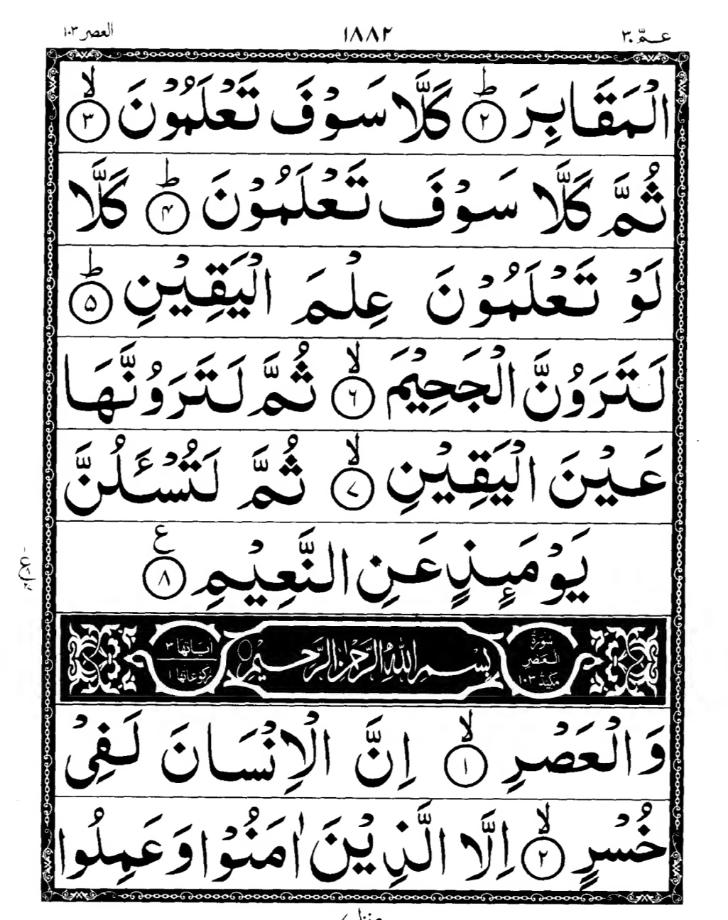 عـمّ ٣٠ ١٨٨٢ العصر ١٠٣
الْمَقَابِرَ ؕ‏﴿۲﴾ كَلَّا سَوْفَ تَعْلَمُوْنَ ۙ‏﴿۳﴾
ثُمَّ كَلَّا سَوْفَ تَعْلَمُوْنَ ؕ‏﴿۴﴾ كَلَّا
لَوْ تَعْلَمُوْنَ عِلْمَ الْيَقِيْنِ ؕ‏﴿۵﴾
لَتَرَوُنَّ الْجَحِيْمَ ۙ‏﴿۶﴾ ثُمَّ لَتَرَوُنَّهَا
عَيْنَ الْيَقِيْنِ ۙ‏﴿۷﴾ ثُمَّ لَتُسْـَٔلُنَّ
يَوْمَىِٕذٍ عَنِ النَّعِيْمِ ‏﴿۸﴾ ع
سُورَة العصر مكية ١٠٣ بِسْمِ اللهِ الرَّحْمٰنِ الرَّحِيْمِ اٰياتها ٣ ركوعاتها ١
وَالْعَصْرِ ۙ‏﴿۱﴾ اِنَّ الْاِنْسَانَ لَفِيْ
خُسْرٍ ۙ‏﴿۲﴾ اِلَّا الَّذِيْنَ اٰمَنُوْا وَعَمِلُوا
منزل ٧